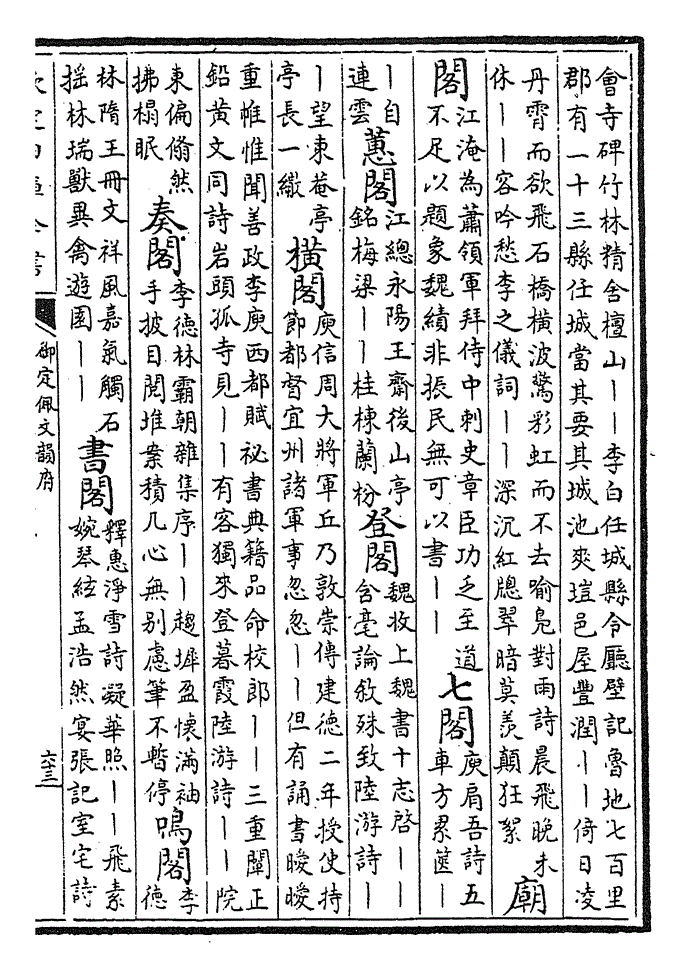 會寺碑竹林精舍檀山丨丨李白任城縣令廳壁記魯地七百里
郡有一十三縣任城當其要其城池爽塏邑屋豐潤丨丨倚日凌
丹霄而欲飛石橋橫波驚彩虹而不去喻鳧對雨詩晨飛晚未
休丨丨容吟愁李之儀詞丨丨深沉紅牕翠暗莫羨顛狂絮
廟
閣
江淹為蕭領軍拜侍中刺史章臣功乏至道
不足以題象魏績非振民無可以書丨丨
七閣
庾肩吾詩五
車方累篋丨丨
丨自
連雲
蕙閣
江總永陽王齋後山亭
銘梅梁丨丨桂棟蘭枌
登閣
魏收上魏書十志啓丨丨
含毫論敘殊致陸游詩丨
丨望東菴亭
亭長一繳
橫閣
庾信周大將軍丘乃敦崇傳建德二年授使持
節都督宜州諸軍事忽忽丨丨但有誦書曖曖
重帷惟聞善政李庾西都賦秘書典籍品命校郎丨丨三重闈正
鉛黃文同詩岩頭孤寺見丨丨有客獨來登暮霞陸游詩丨丨院
東偏翛然
拂榻眠
奏閣
李德林霸朝雜集序丨丨趨墀盈懷滿袖
手披目閱堆案積几心無別慮筆不暫停
鳴閣
李
德
林隋王冊文祥風嘉氣觸石
搖林瑞獸異禽遊園丨丨
書閣
釋惠淨雪詩凝華照丨丨飛素
婉琴絃孟浩然宴張記室宅詩
欽定四庫全書
御定佩文韻府
六三